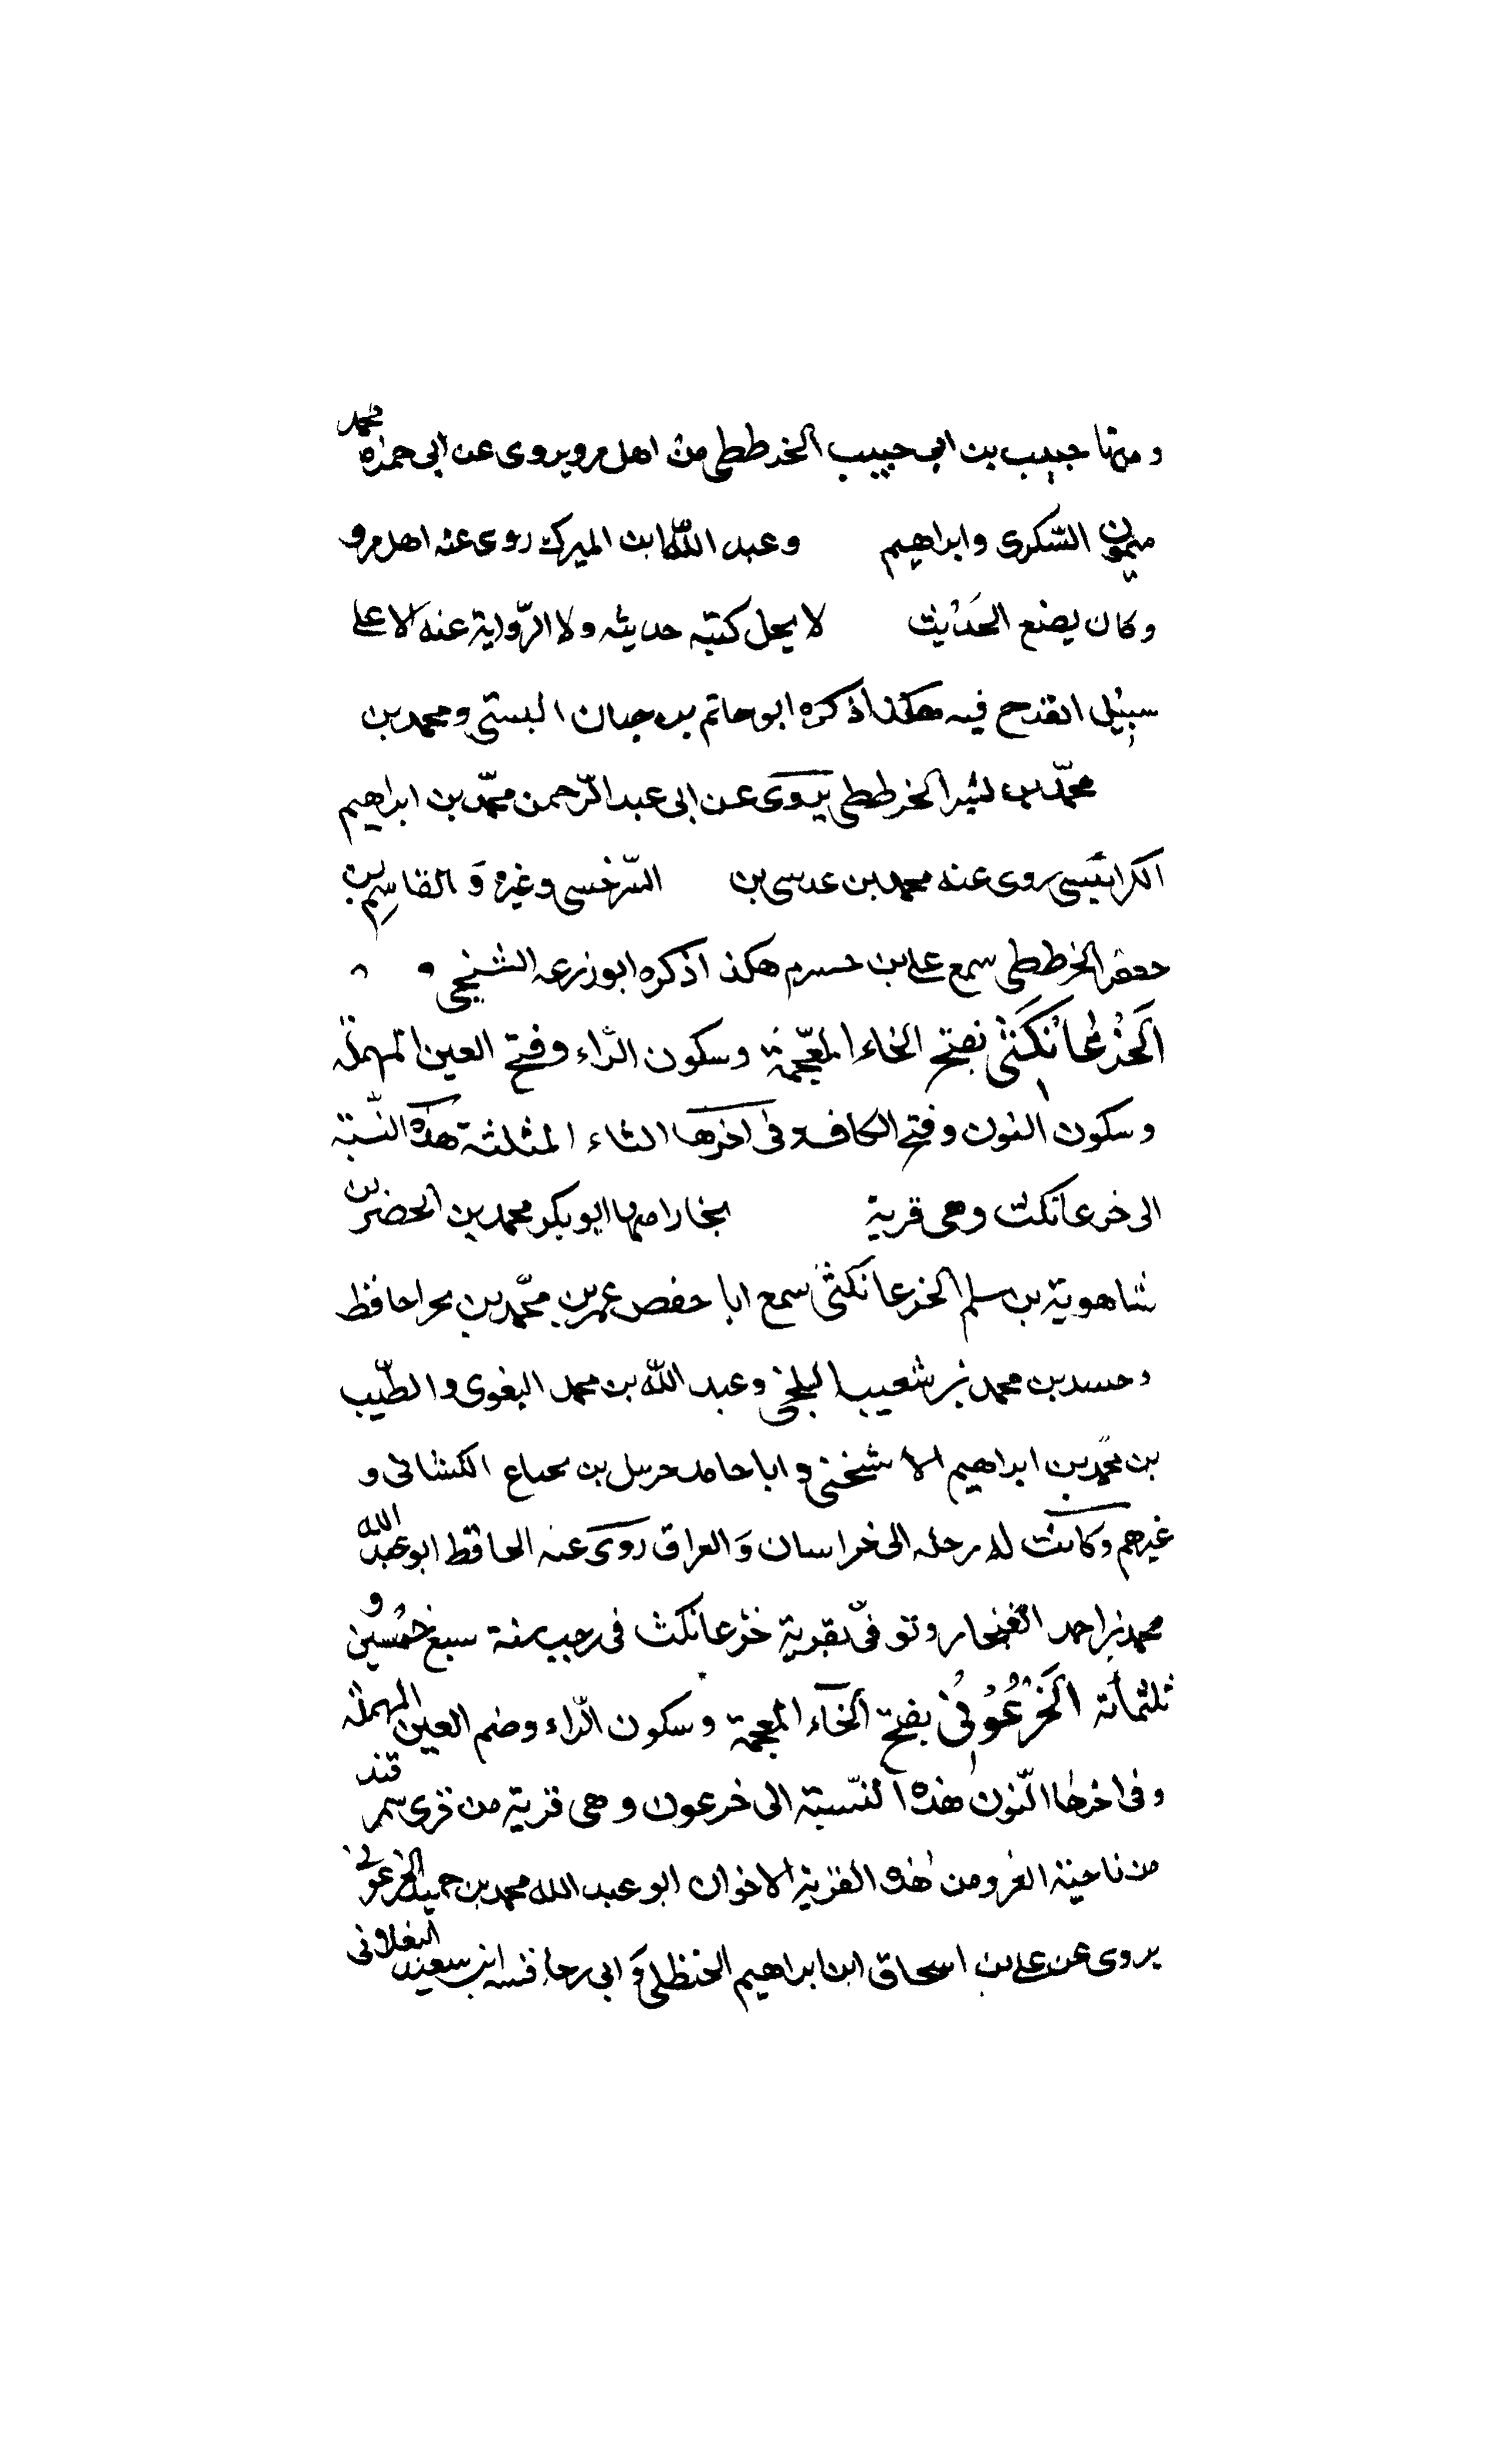 ومنها حبيب بن ابى حبيب الخرططى من اهل مرو يروى عن ابى حمزه محمد
ميمون السّكرى وابراهيم وعبد اللّه ابن المبرك روى عنه اهل مرو
وكان يضع الحَديث لا يحل كتبه حديثه ولا الرّواية عنه الا على
سبيل القدح فيه هكذا ذكره ابو حاتم بن حبان البستى ومحمد بن
محمّد بن بشير الخرططى يروى عن ابى عبد الرّحمن محمّد بن ابراهيم
الكرابيسى روى عنه محمد بن عيسى بن السّرخسى وغيره وَ القاسم بن
جعفر الخرططى سمع على بن خشرم هكذا ذكره ابو زرعه السّنجى و
اَلخَرْعَانْكَثى بفتح الخاء المعجمة وسكون الرّاء وفتح العين المهملة
وسكون النون وفتح الكاف وفى آخرها الثاء المثلثة هذه النّسبة
الى خرعانكث وهى قرية بخارا منها ابو بكر محمد بن الخضر بن
شاهوية بن سلم الخرعانكثى سمع ابا حفص عمر بن محمّد بن بحر احافظ
و محمد بن شعيب البلخى وعبد اللّه بن محمد البغوى والطّيب
بن محمد بن ابراهيم الاشخنى و ابا حامد بن الكشانى و
غيرهم وكانت له رحله الى خراسان وَالعراق روى عنه الحافظ ابو عبد الله
محمد بن احمد الغنجار وتوفّى بقرية خرعانكث فى رجب سنة سبع وخمسين
ثلثمائة الخَرْعُوْنى بفتح الخاء المعجمة وسكون الرّاء وضم العين المهملة
وفى اخرها النّون هذه النّسبة الى خرعون وهى قرية من قرى سمرقند
من ناحية الغر ومن هذه القرية الاخوان ابو عبد الله محمد بن حميد الخرعونى
يروى عن على بن اسحاق ابن ابراهيم الحنظلى وَ ابى رجا قتيبه ابن سعيد البغلانى